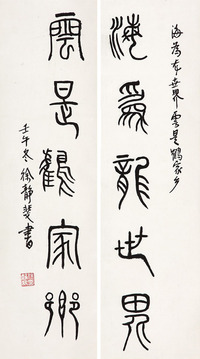 海為龍世界雲是鶴家鄉
海為龍世界
雲是鶴家鄉
壬午冬徐靜斐書